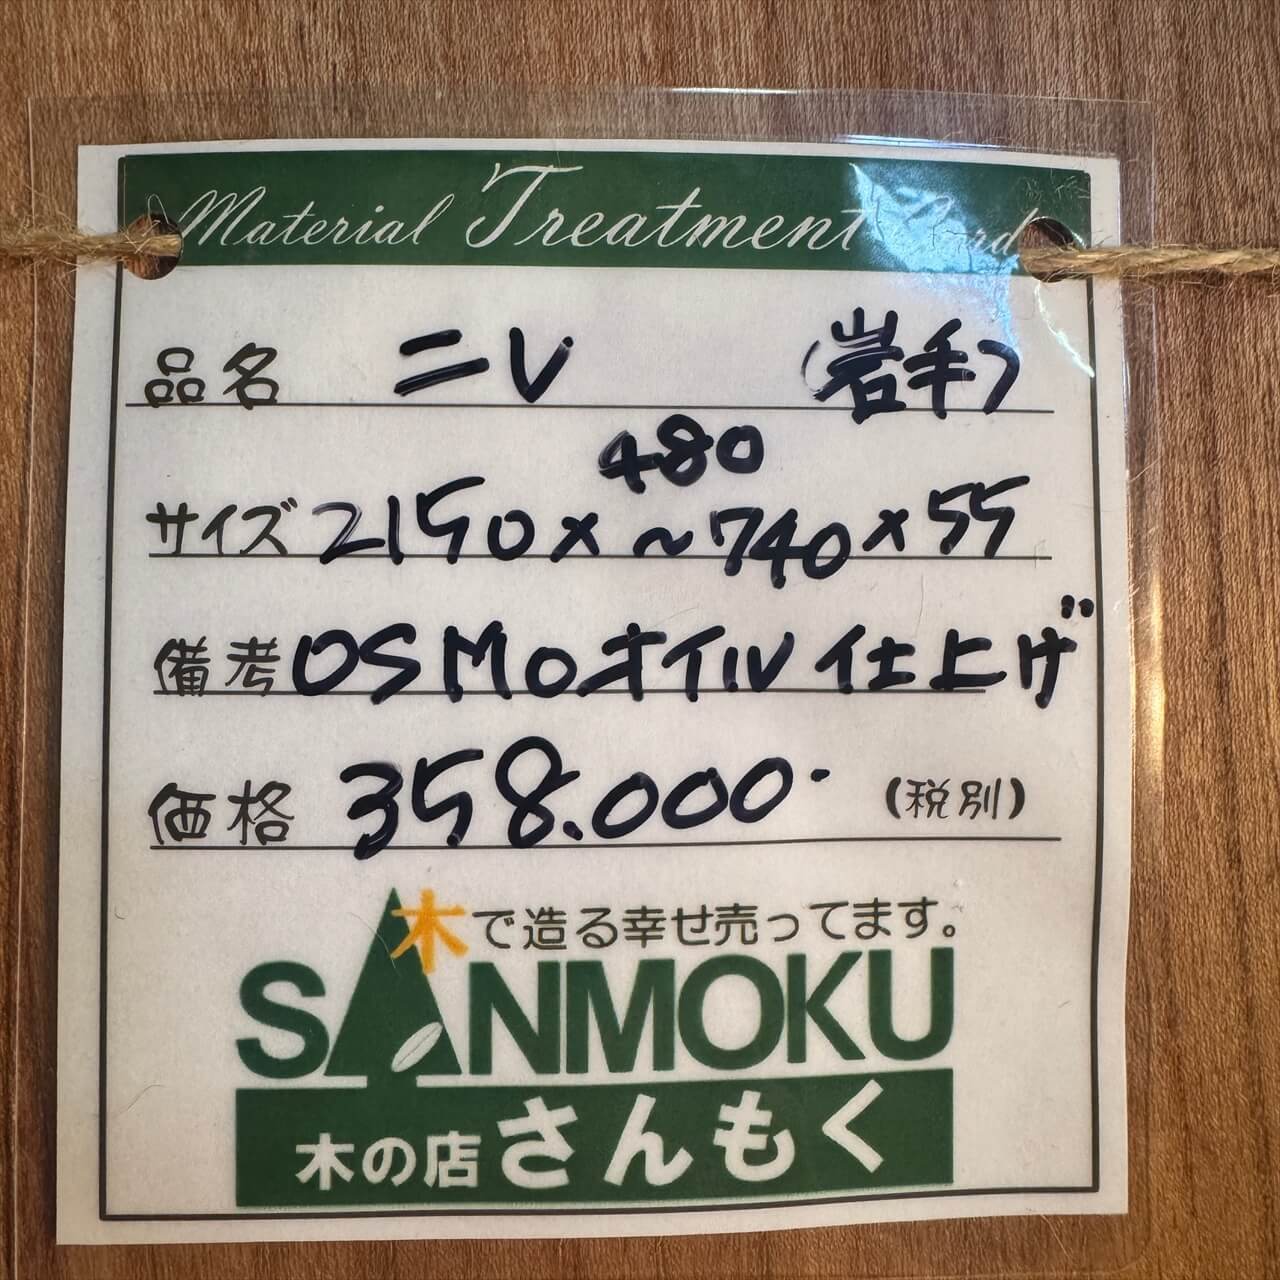 Material Treatment Card
品名 ニレ (岩手)
サイズ 2150 × 480~740 × 55
備考 OSMOオイル仕上げ
価格 358.000- (税別)
木で造る幸せ売ってます。
SANMOKU
木の店さんもく